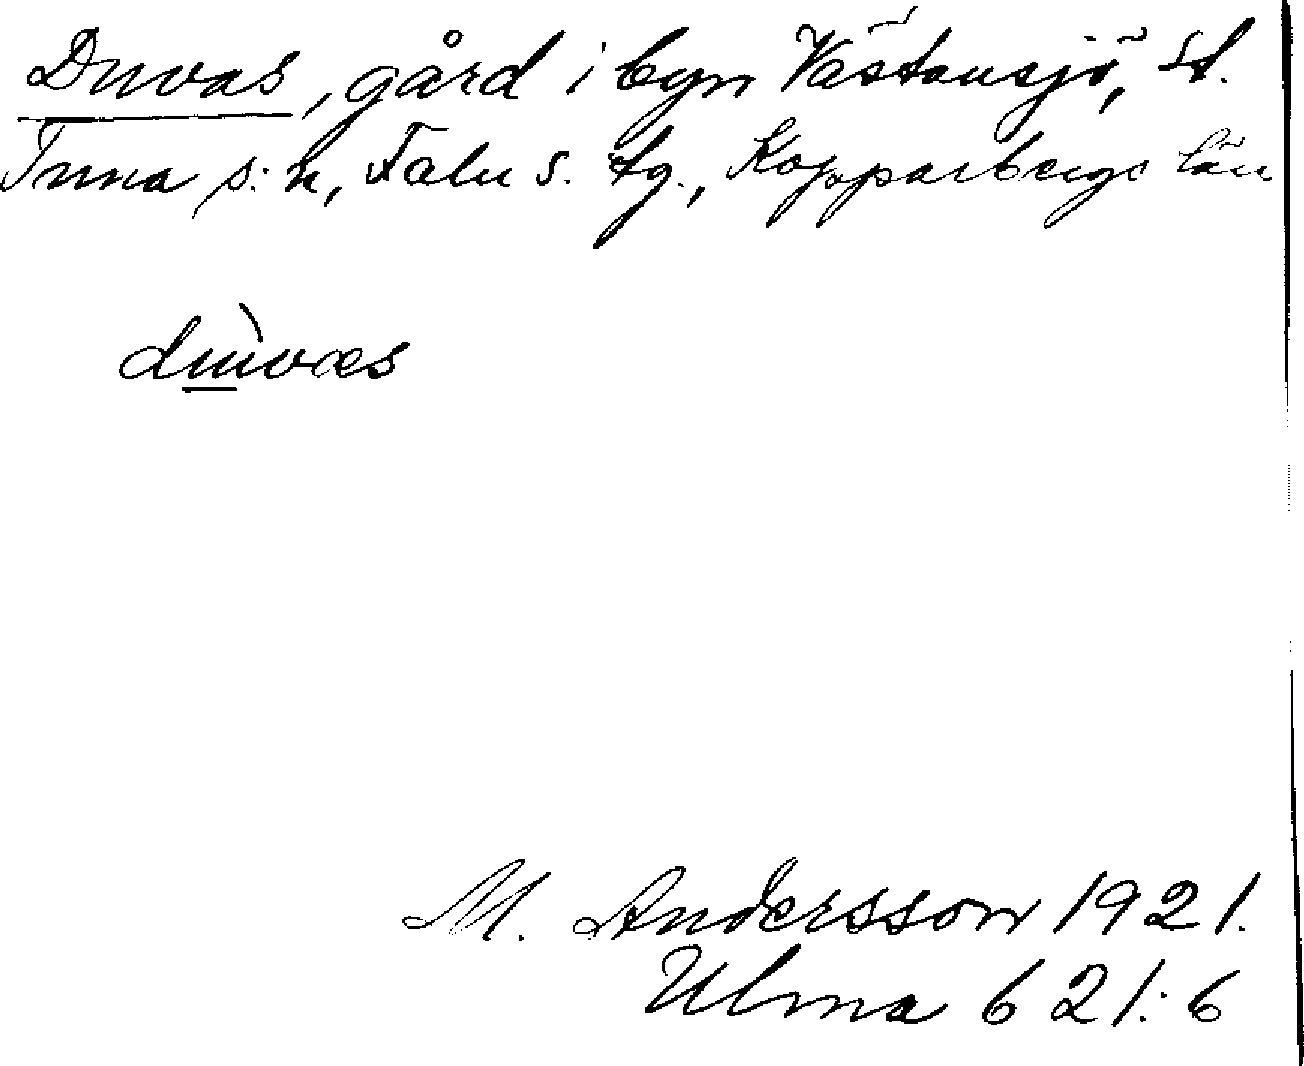 Duvas, gård i byn Västansjö, St.
Tuna s:n, Falu s. tg., Kopparbergs län
dùvas
M. Andersson 1921.
Ulma 621:6